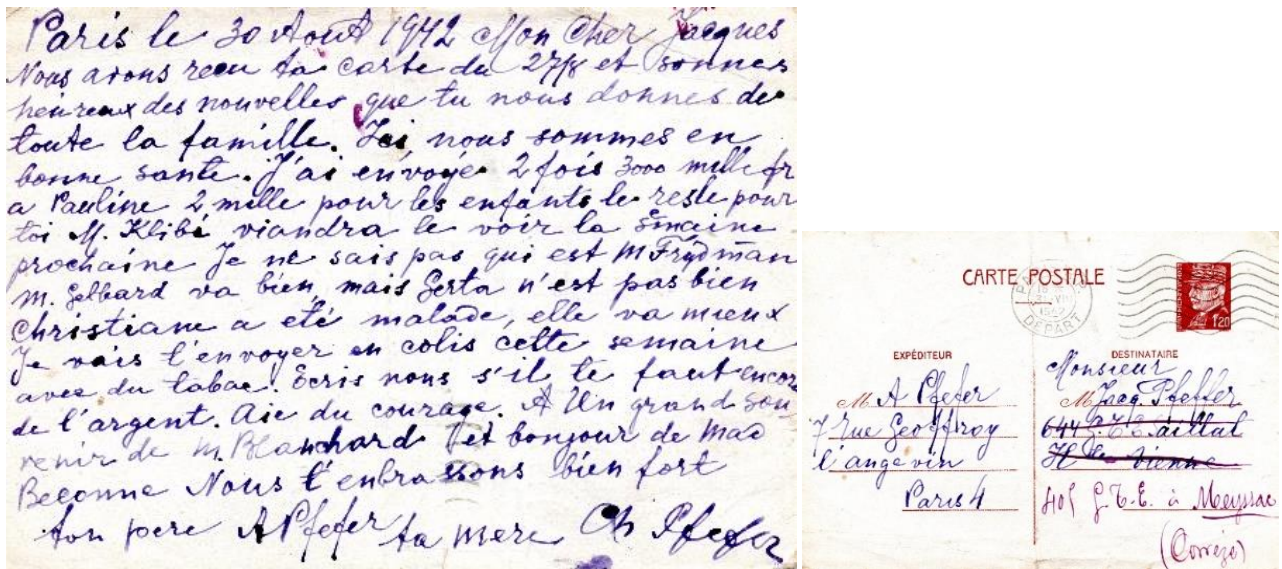 Paris le 30 Aout 1942 Mon Cher Jacques
Nous avons recu ta carte du 27/8 et sommes
heureux des nouvelles que tu nous donnes de
toute la famille. Ici, nous sommes en
bonne sante. J'ai envoyé 2 fois 3000 mille fr
a Pauline 2 mille pour les enfants le reste pour
toi M. Klibi viandra le voir la smaine
prochaine Je ne sais pas qui est M Frydman
M. Gelbard va bien, mais Gerta n'est pas bien
Christiane a eté malade, elle va mieux
Je vais t'envoyer en colis cette semaine
avec du tabac. Ecris nous s'il te faut encor
de l'argent. Aie du courage. A Un grand Sou
venir de M. Blanchard et bonjour de Mad
Beconne Nous t'enbrassons bien fort
ton pere A Pfefer ta mere Ch Pfefer
CARTE POSTALE
1942
DEPART
1f20
EXPÉDITEUR
M A Pfefer
7 rue Geoffroy
l'angevin
Paris 4
DESTINATAIRE
Monsieur
M Jacq Pfeffer
644 G.T.E. Saillat
Hte Vienne
405 G.T.E. à Meyssac
(Corrèze)